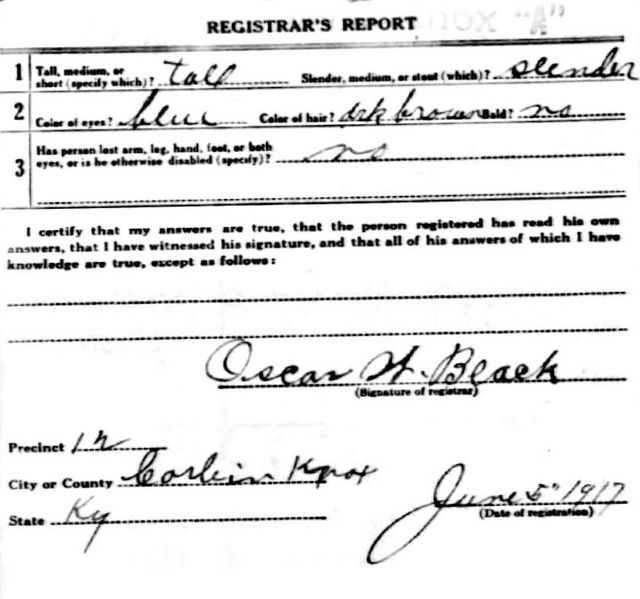 REGISTRAR'S REPORT
1 Tall, medium, or short (specify which)? tall Slender, medium, or stout (which)? slender
2 Color of eyes? blue Color of hair? drk brown Bald? no
3 Has person lost arm, leg, hand, foot, or both eyes, or is he otherwise disabled (specify)? no
I certify that my answers are true, that the person registered has read his own
answers, that I have witnessed his signature, and that all of his answers of which I have
knowledge are true, except as follows:
Oscar W. Black
(Signature of registrar)
Precinct 12
City or County Corbin Knox
State Ky
June 5" 1917
(Date of registration)